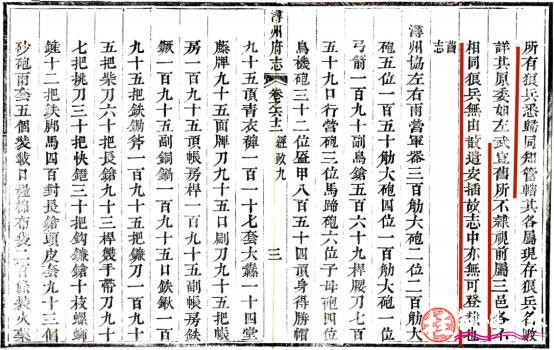 所有狼兵悉歸同知管轄其各屬現存狼兵名數
詳其原委如左武宣舊所不隸視前屬三邑各不
相同狼兵無由散遣安插故志中亦無可登
舊志
潯州協左右兩營軍器三百觔大砲二位二百觔大
砲五位一百五十觔大砲四位一百觔大砲一位
弓箭一百九十副鳥鎗五百六十九桿腰刀七百
五十九口行營砲三位馬蹄砲六位子母砲四位
鳥機砲三十二位盔甲八百五十四頂身得勝帽
潯州府志
卷之六十二
經政九
三
九十五頂青衣褲一百一十七套大纛一十四堂
藤牌九十五面牌刀九十五口刷刀九十五把帳
房一百九十五頂帳房桿一百九十五副帳房鉄
鍬一百九十五副銅鍋一百九十五口鉄鍬一百
九十五把鉄鋤一百九十五把鐮刀一百九十
五把柴刀六十把長鎗九十三桿雙手帶刀九十
七把挑刀三十把快鎗三十把鈎鐮鎗十枝螺螄
鎚十二把鉄脚馬四百封長鎗頭皮套九十三個
砂砲雨套五個裝口糧棉布袋二百條裝火藥